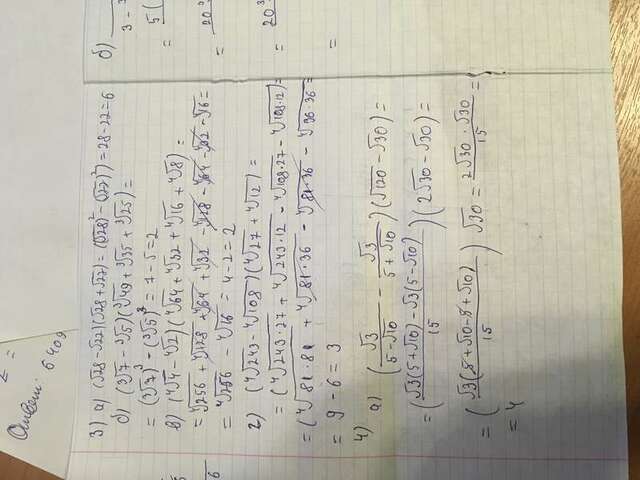 Ответ: 6409
3) а) (√28 - √22)(√28 + √22) = ((√28)² - (√22)²) = 28 - 22 = 6
б) (∛7 - ∛5)(∛49 + ∛35 + ∛25) =
= (∛7)³ - (∛5)³ = 7 - 5 = 2
в) (⁴√4 - ⁴√2)(⁴√64 + ⁴√32 + ⁴√16 + ⁴√8) =
= ⁴√256 + ⁴√128 + ⁴√64 + ⁴√32 - ⁴√128 - ⁴√64 - ⁴√32 - ⁴√16 =
= ⁴√256 - ⁴√16 = 4 - 2 = 2
г) (⁴√243 - ⁴√108)(⁴√27 + ⁴√12) =
= (⁴√243·27 + ⁴√243·12 - ⁴√108·27 - ⁴√108·12) =
= (⁴√81·81 + ⁴√81·36 - ⁴√81·36 - ⁴√36·36 =
= 9 - 6 = 3
4) а) (√3/(5-√10) - √3/(5+√10))(√120 - √30) =
= ((√3(5+√10) - √3(5-√10))/15)(2√30 - √30) =
= (√3(5+√10-5+√10)/15) √30 = 2√30·√30/15 =
= 4
б)
3 -
= 5(
= 20
= 20³
=